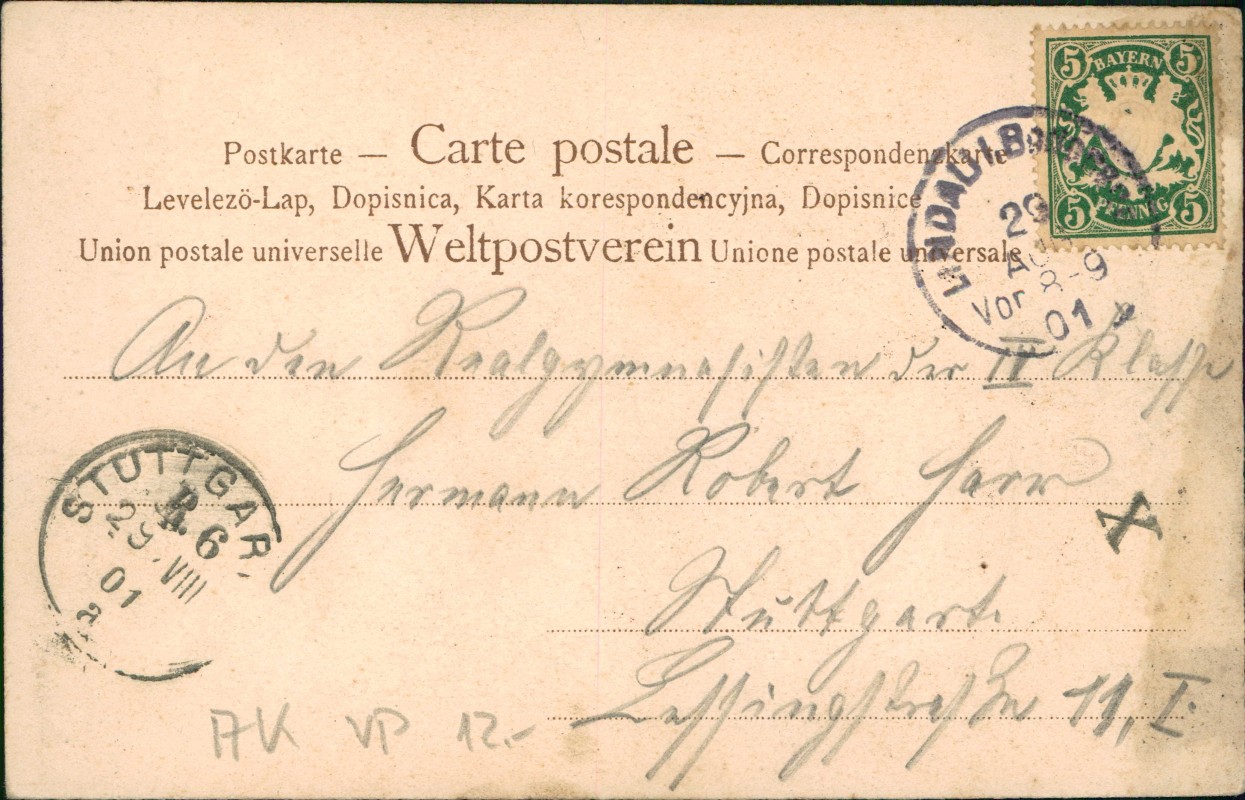 5 BAYERN 5
5 PFENNIG 5
Postkarte — Carte postale — Correspondenzkarte
Levelezö-Lap, Dopisnica, Karta korespondencyjna, Dopisnice
Union postale universelle Weltpostverein Unione postale universale
LINDAU I.B.
29
AUG
Vor. 8-9
01
An den Realgymnasisten der IV Klasse
Hermann Robert Harr
Stuttgart.
Lessingstraße 11, I.
X
STUTTGAR
29. VIII
01
6
AK VP 12.-